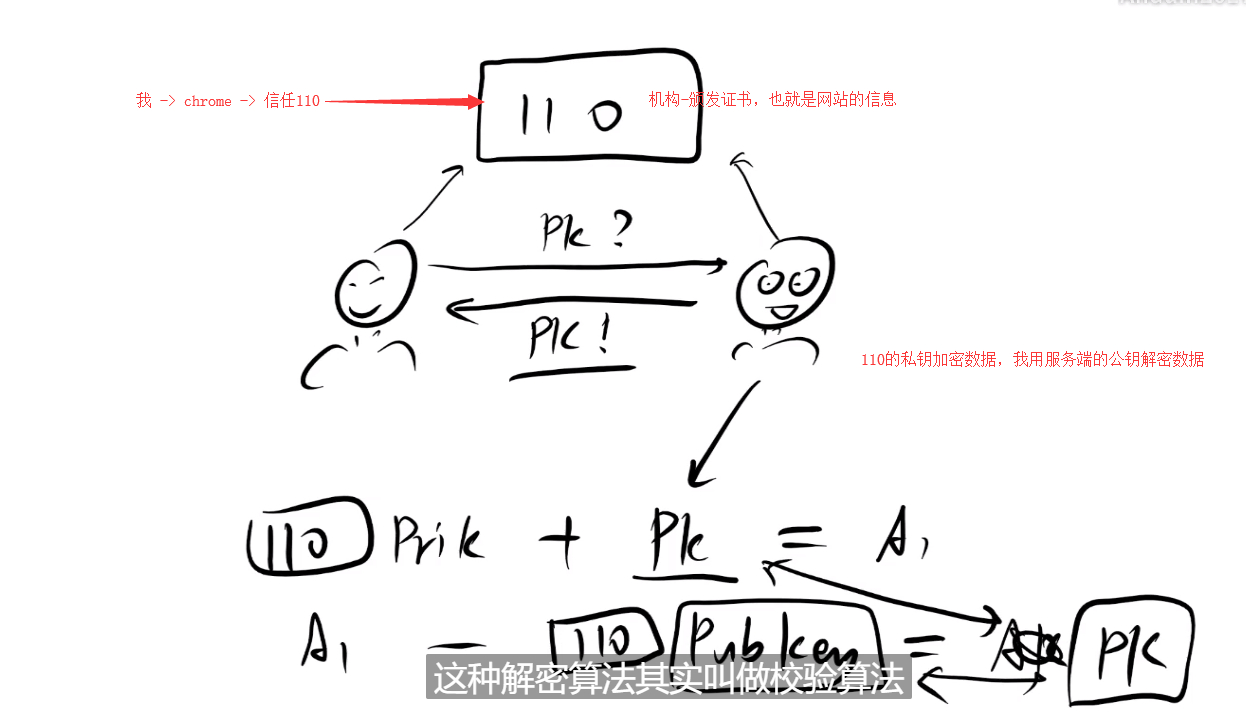 我 -> chrome -> 信任110
110
机构-颁发证书，也就是网站的信息
Pk ?
Pk !
110的私钥加密数据，我用服务端的公钥解密数据
110 Prik + Pk = A1
A1 - 110 Pub key = PK
这种解密算法其实叫做校验算法